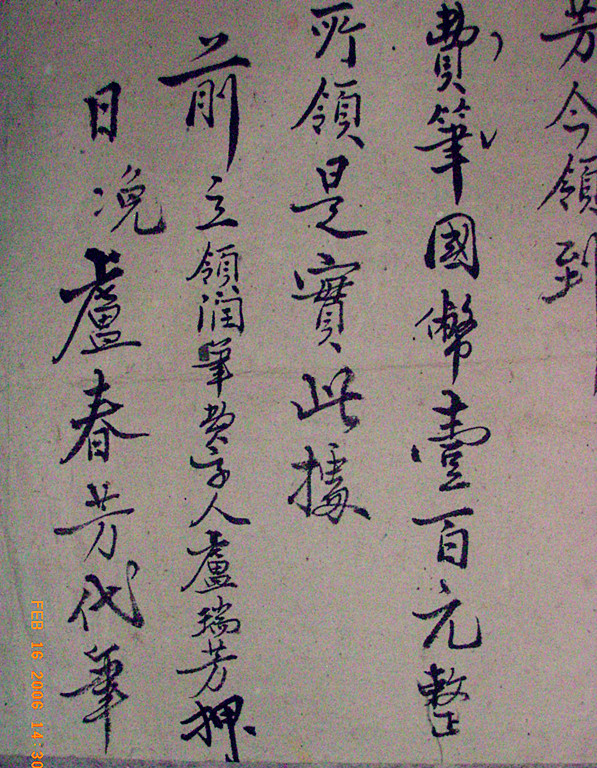 芳今領到
費筆國幣壹百元整
所領是實此據
前立領润筆費字人盧瑞芳押
日浼盧春芳代筆
FEB 16 2006 14:30